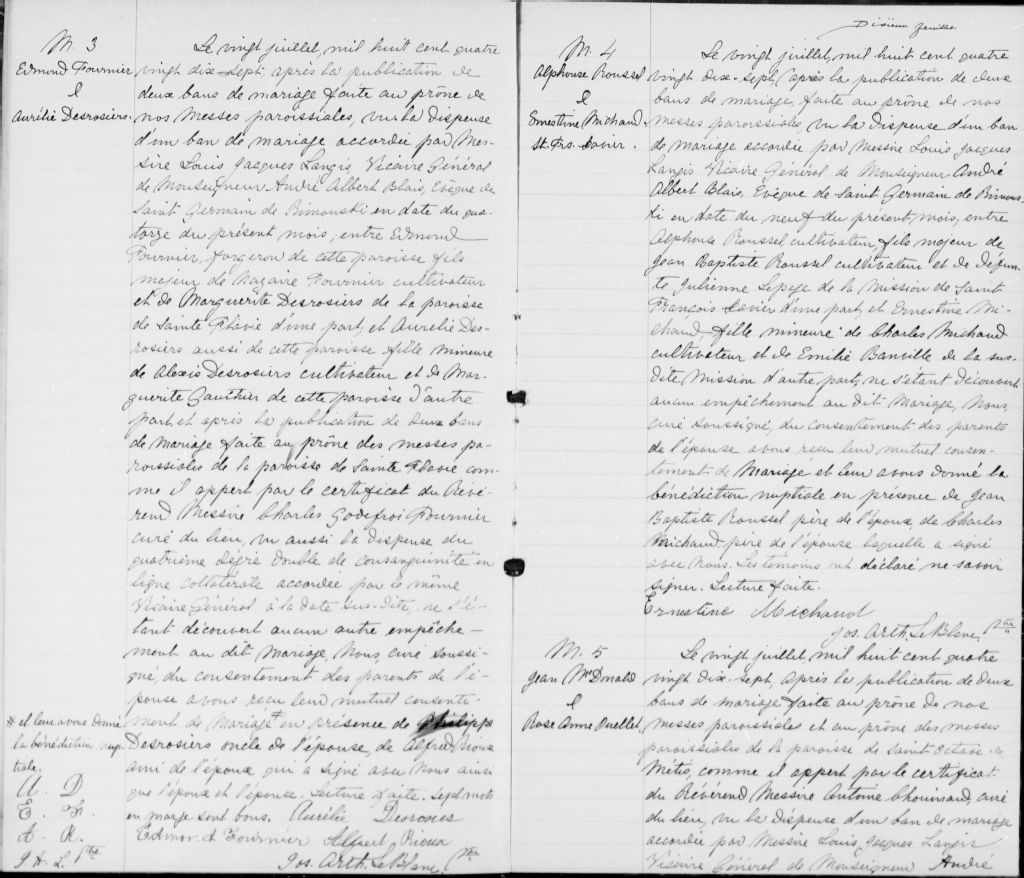 M. 3
Edmond Fournier
&
Aurélie Desrosiers.
Le vingt juillet, mil huit cent quatre
vingt dix-sept, après la publication de
deux bans de mariage faite au prône de
nos Messes paroissiales, vu la dispense
d'un ban de mariage accordée par Mes-
sire Louis Jacques Langis, Vicaire Général
de Monseigneur André Albert Blais, Evêque de
Saint Germain de Rimouski en date du qua-
torze du présent mois, entre Edmond
Fournier, forgeron de cette paroisse fils
majeur de Nazaire Fournier cultivateur
et de Marguerite Desrosiers de la paroisse
de Sainte Flavie d'une part, et Aurélie Des-
rosiers aussi de cette paroisse fille mineure
de Alexis Desrosiers cultivateur et de Mar-
guerite Gauthier de cette paroisse d'autre
part, et après la publication de deux bans
de Mariage faite au prône des messes pa-
roissiales de la paroisse de Sainte Flavie com-
me il appert par le certificat du Révé-
rend Messire Charles Godefroi Fournier
curé du lieu, vu aussi la dispense du
quatrième degré double de consanguinité en
ligne collatérale accordée par le même
Vicaire Général à la date sus-dite, ne s'é-
tant découvert aucun autre empêche-
ment au dit Mariage, Nous, curé soussi-
gné, du consentement des parents de l'é-
pouse avons reçu leur mutuel consente-
ment de Mariage # en présence de Philippe
Desrosiers oncle de l'épouse, de Alfred Rioux
ami de l'époux qui a signé avec Nous ainsi
que l'époux et l'épouse. Lecture faite. Sept mots
en marge sont bons. Aurélie Desrosiers
Edmond Fournier Alfred Rioux
Jos. Arth. LeBlanc, Ptre
# et leur avons donné
la bénédiction nup-
tiale.
A. D
E. F.
A. R.
J. A. L. Ptre
Dixième feuille
M. 4
Alphonse Roussel
&
Ernestine Michaud.
St. Frs. Xavier.
Le vingt juillet, mil huit cent quatre
vingt dix-sept, après la publication de deux
bans de mariage, faite au prône de nos
messes paroissiales, vu la dispense d'un ban
de mariage accordée par Messire Louis Jacques
Langis Vicaire Général de Monseigneur André
Albert Blais, Evêque de Saint Germain de Rimous-
ki en date du neuf du présent mois, entre
Alphonse Roussel cultivateur, fils majeur de
Jean Baptiste Roussel cultivateur et de défun-
te Julienne Lepage de la Mission de Saint
François Xavier d'une part, et Ernestine Mi-
chaud, fille mineure de Charles Michaud
cultivateur et de Emilie Banville de la sus-
dite Mission d'autre part, ne s'étant découvert
aucun empêchement au dit Mariage, Nous,
curé soussigné, du consentement des parents
de l'épouse avons reçu leur mutuel consen-
tement de Mariage et leur avons donné la
bénédiction nuptiale en présence de Jean
Baptiste Roussel père de l'époux de Charles
Michaud, père de l'épouse laquelle a signé
avec Nous. Les témoins ont déclaré ne savoir
signer. Lecture faite.
Ernestine Michaud
Jos. Arth. LeBlanc, Ptre
M. 5
Jean McDonald
&
Rose Anne Ouellet.
Le vingt juillet, mil huit cent quatre
vingt dix-sept, après la publication de deux
bans de mariage faite au prône de nos
messes paroissiales et au prône des messes
paroissiales de la paroisse de Saint Octave de
Métis, comme il appert par le certificat
du Révérend Messire Antoine Chouinard, curé
du lieu, vu la dispense d'un ban de mariage
accordée par Messire Louis Jacques Langis
Vicaire Général de Monseigneur André